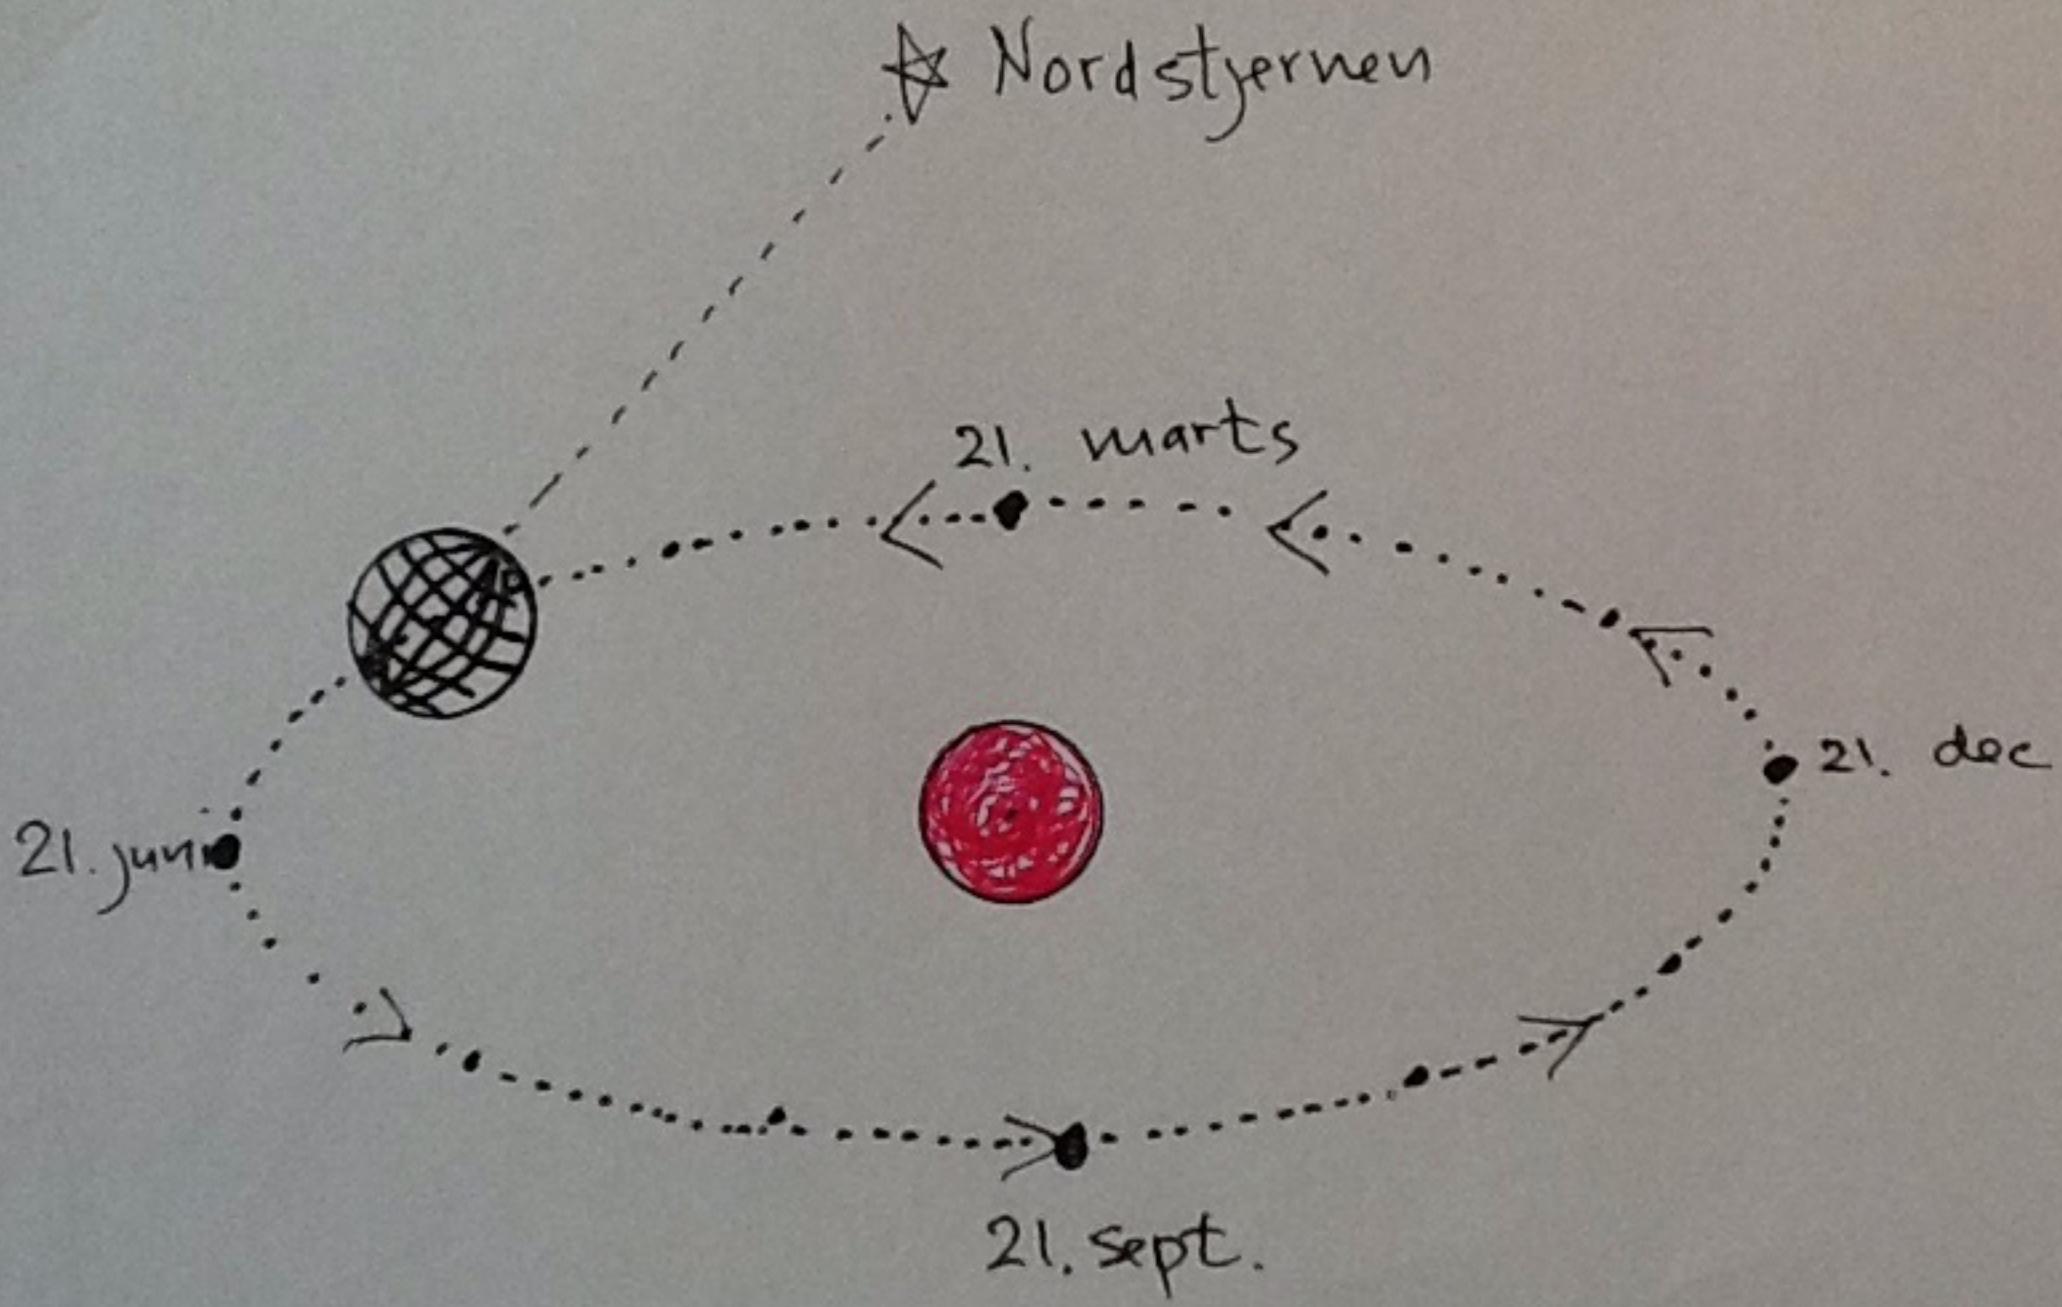 Nordstjernen
21. marts
21. dec
21. juni
21. sept.